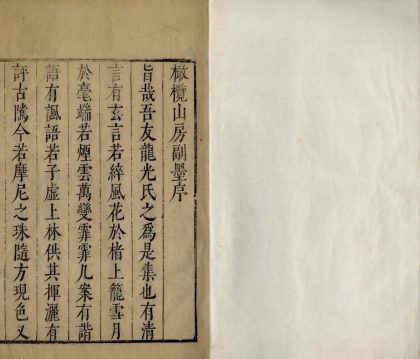 橄欖山房副墨序
旨哉吾友龍光氏之爲是集也有清
言有玄言若綷風花於楮上籠雪月
於毫端若煙雲萬變霏霏几案有諧
語有諷語若子虛上林供其揮灑有
評古隲今若摩尼之珠隨方現色又